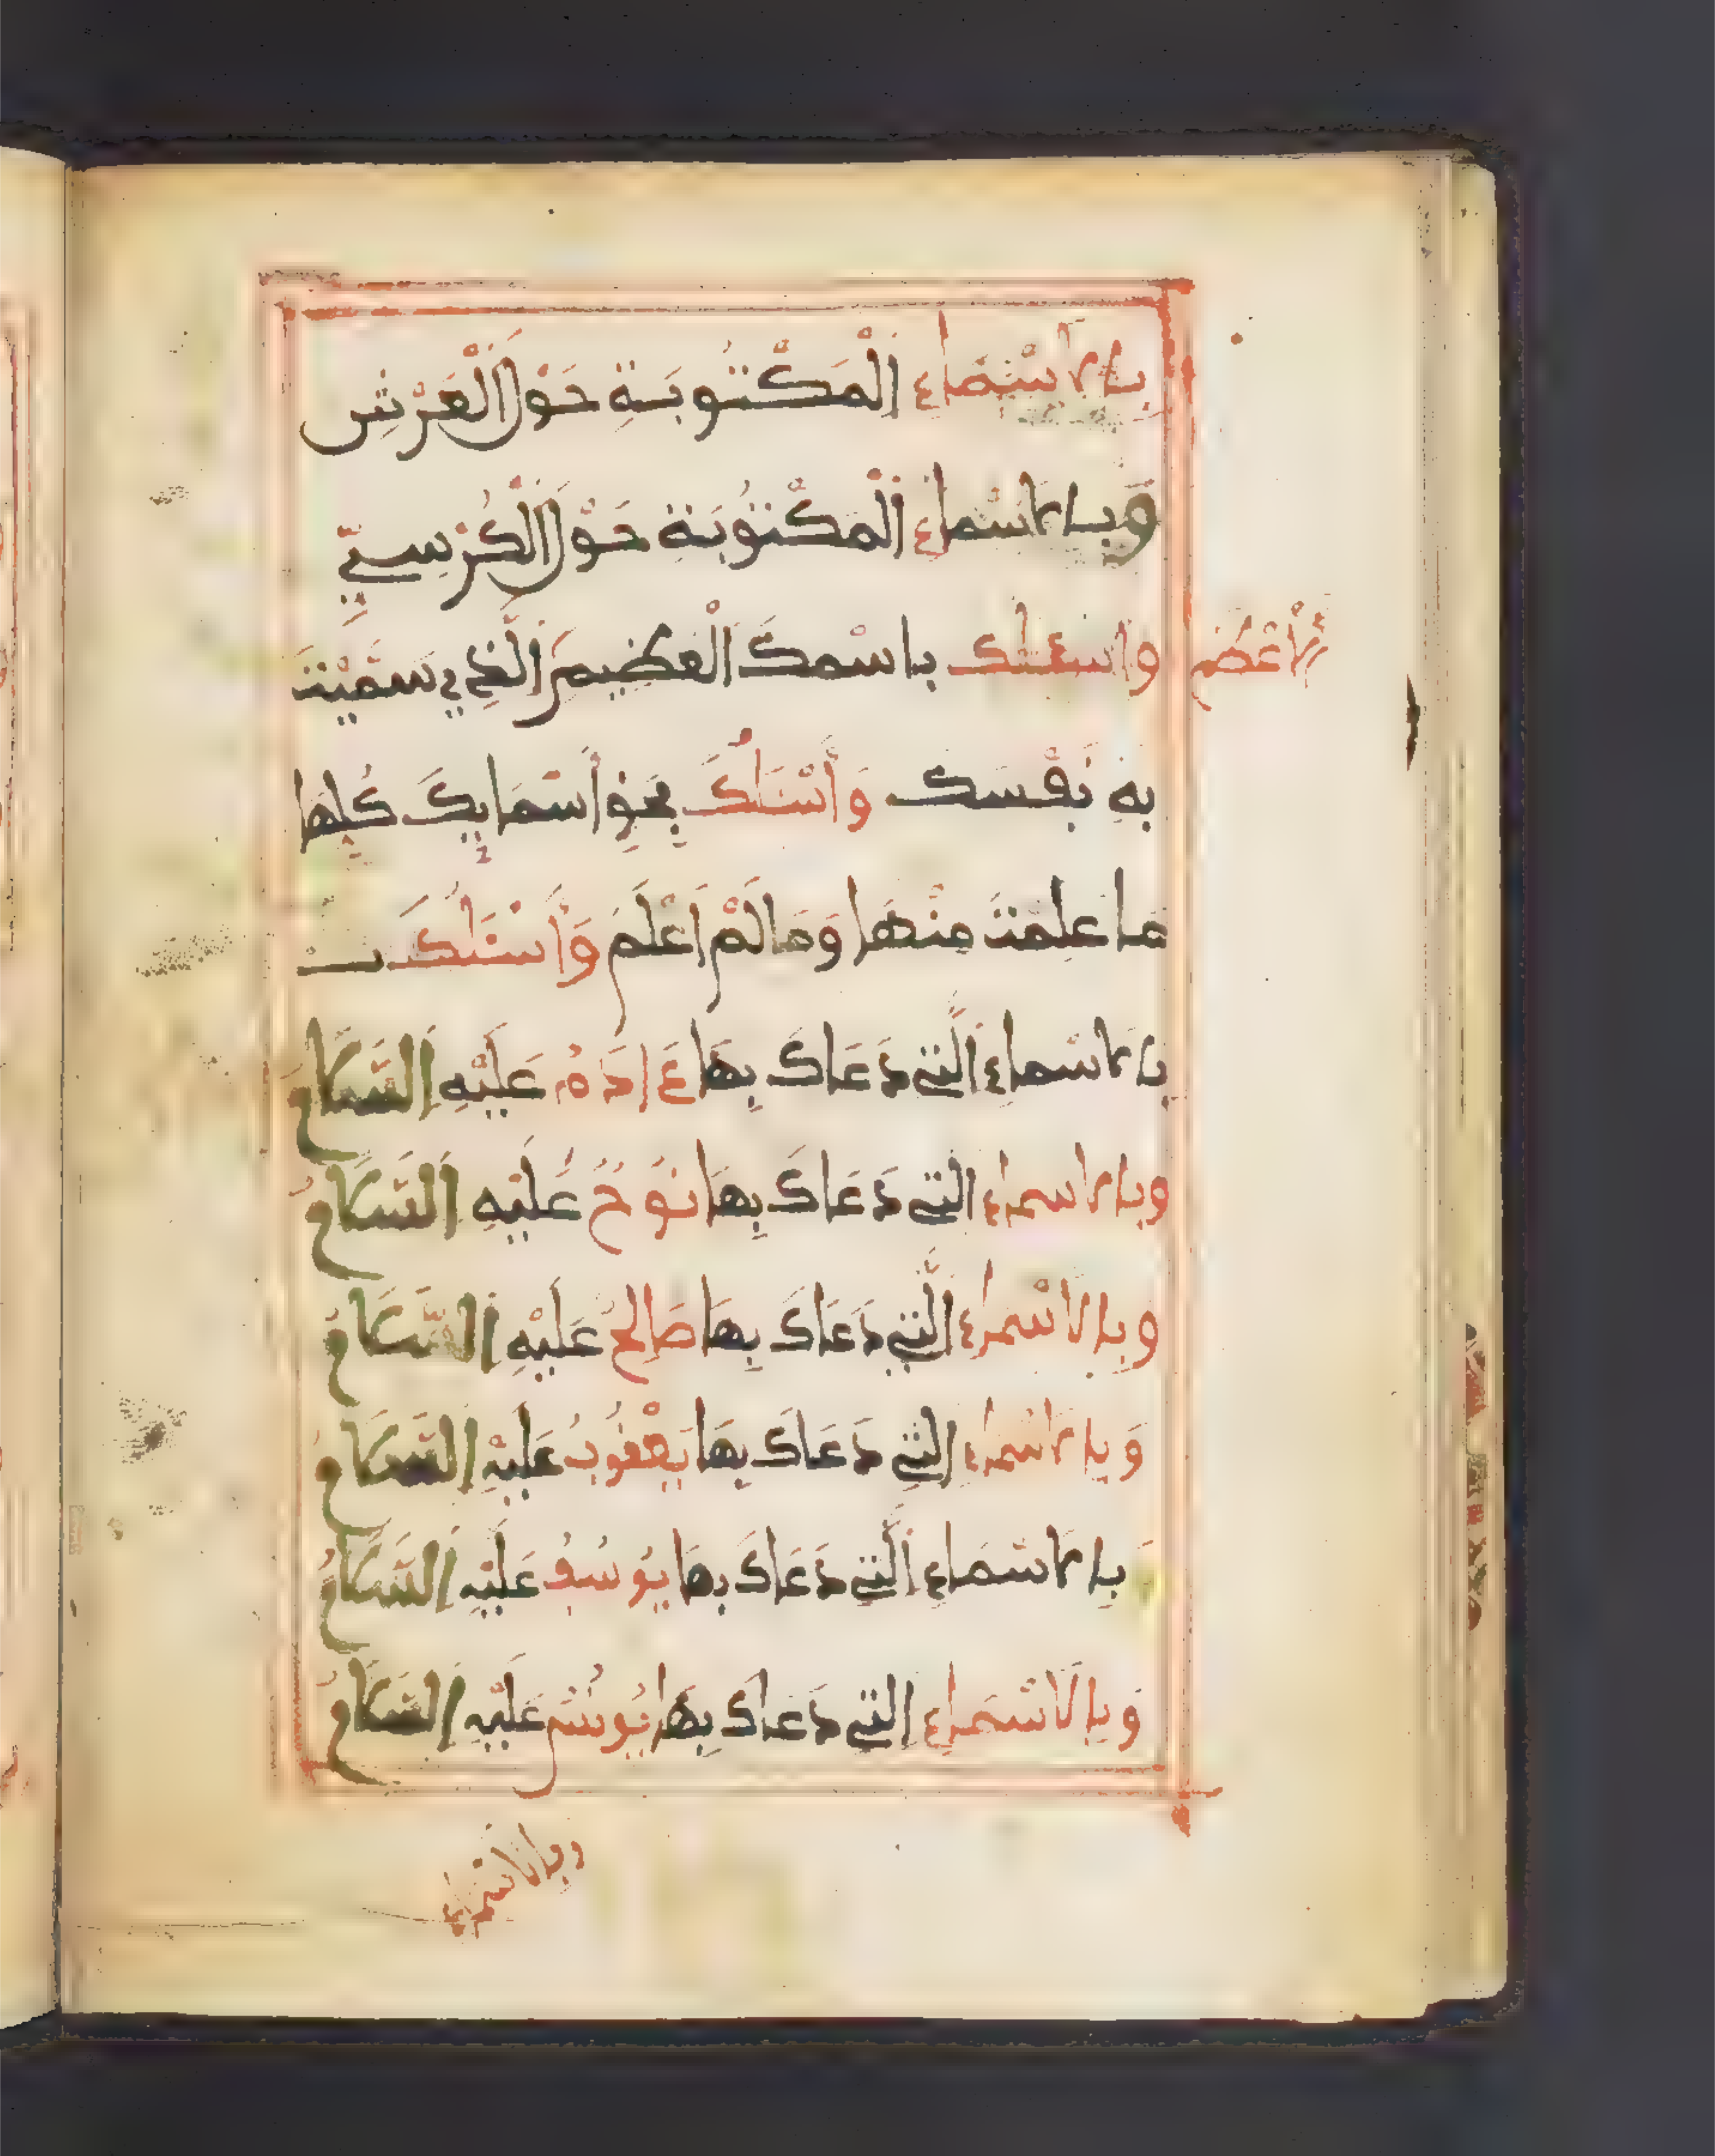 بالاسْمَاءِ اَلْمَكْتُوبَةِ حَوْلَ اَلْعَرْشِ
وَبِالاسْماءِ اَلْمَكْتُوبَة حَوْلَ اَلْكُرْسِيِّ
واسئلك باسْمكَ اَلْعَظِيمِ اَلَّذِي سَمَّيْتَ
الاَعْظَمِ
بِهِ نَفْسَك وَأَسْئَلُكَ بِحَقِّ أَسْمَايِكَ كُلِّهَا
مَا عَلِمْتُ مِنْهَا وَمَا لَمْ اَعْلَمْ وَأَسْئَلُكَ بـ
بِالاسْماءِ اَلَّتِي دَعَاكَ بِهَا ءَادَمُ عَلَيْهِ اِلسَّلَامُ
وبالاسماء اَلتِي دَعَاكَ بِهَا نُوحٌ عَلَيْهِ اِلسَّلَامُ
وبِالاسْماء اَلَّتِي دَعَاكَ بِهَا صَالِحٌ عَلَيْهِ اِلسَّلَامُ
وَبِالاسْماء اِلتِي دَعَاكَ بِهَا يَعْقُوبُ عَلَيْهِ اِلسَّلَامُ
وَبِالاسْمَاءِ اَلَّتِي دَعَاكَ بِهَا يُوسُفُ عَلَيْهِ اِلسَّلَامُ
وَبِالاسْمَاءِ اِلتِي دَعَاكَ بِهَا يُونُسُ عَلَيْهِ اِلسَّلَامُ
وبالاسْماء